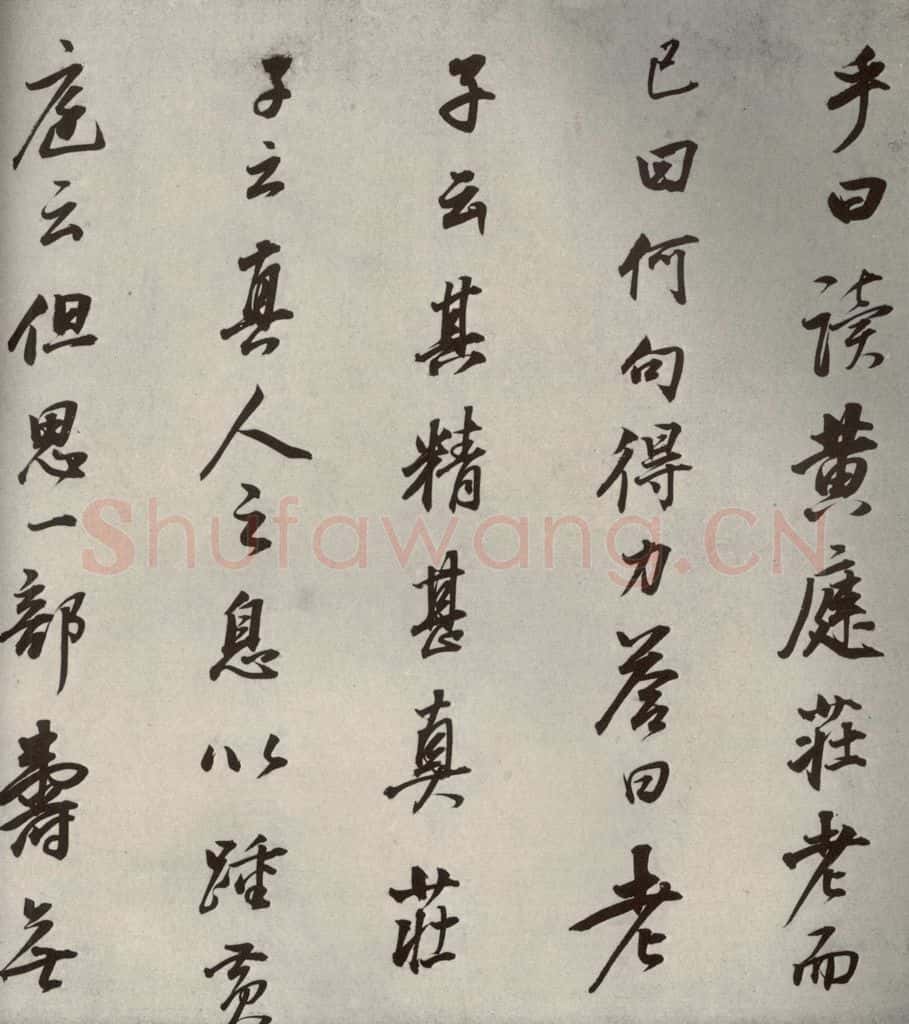 乎曰讀黄庭莊老而
已曰何句得力答曰老
子云其精甚真莊
子云真人之息以踵黄
庭云但思一部壽無
Shufawang.CN